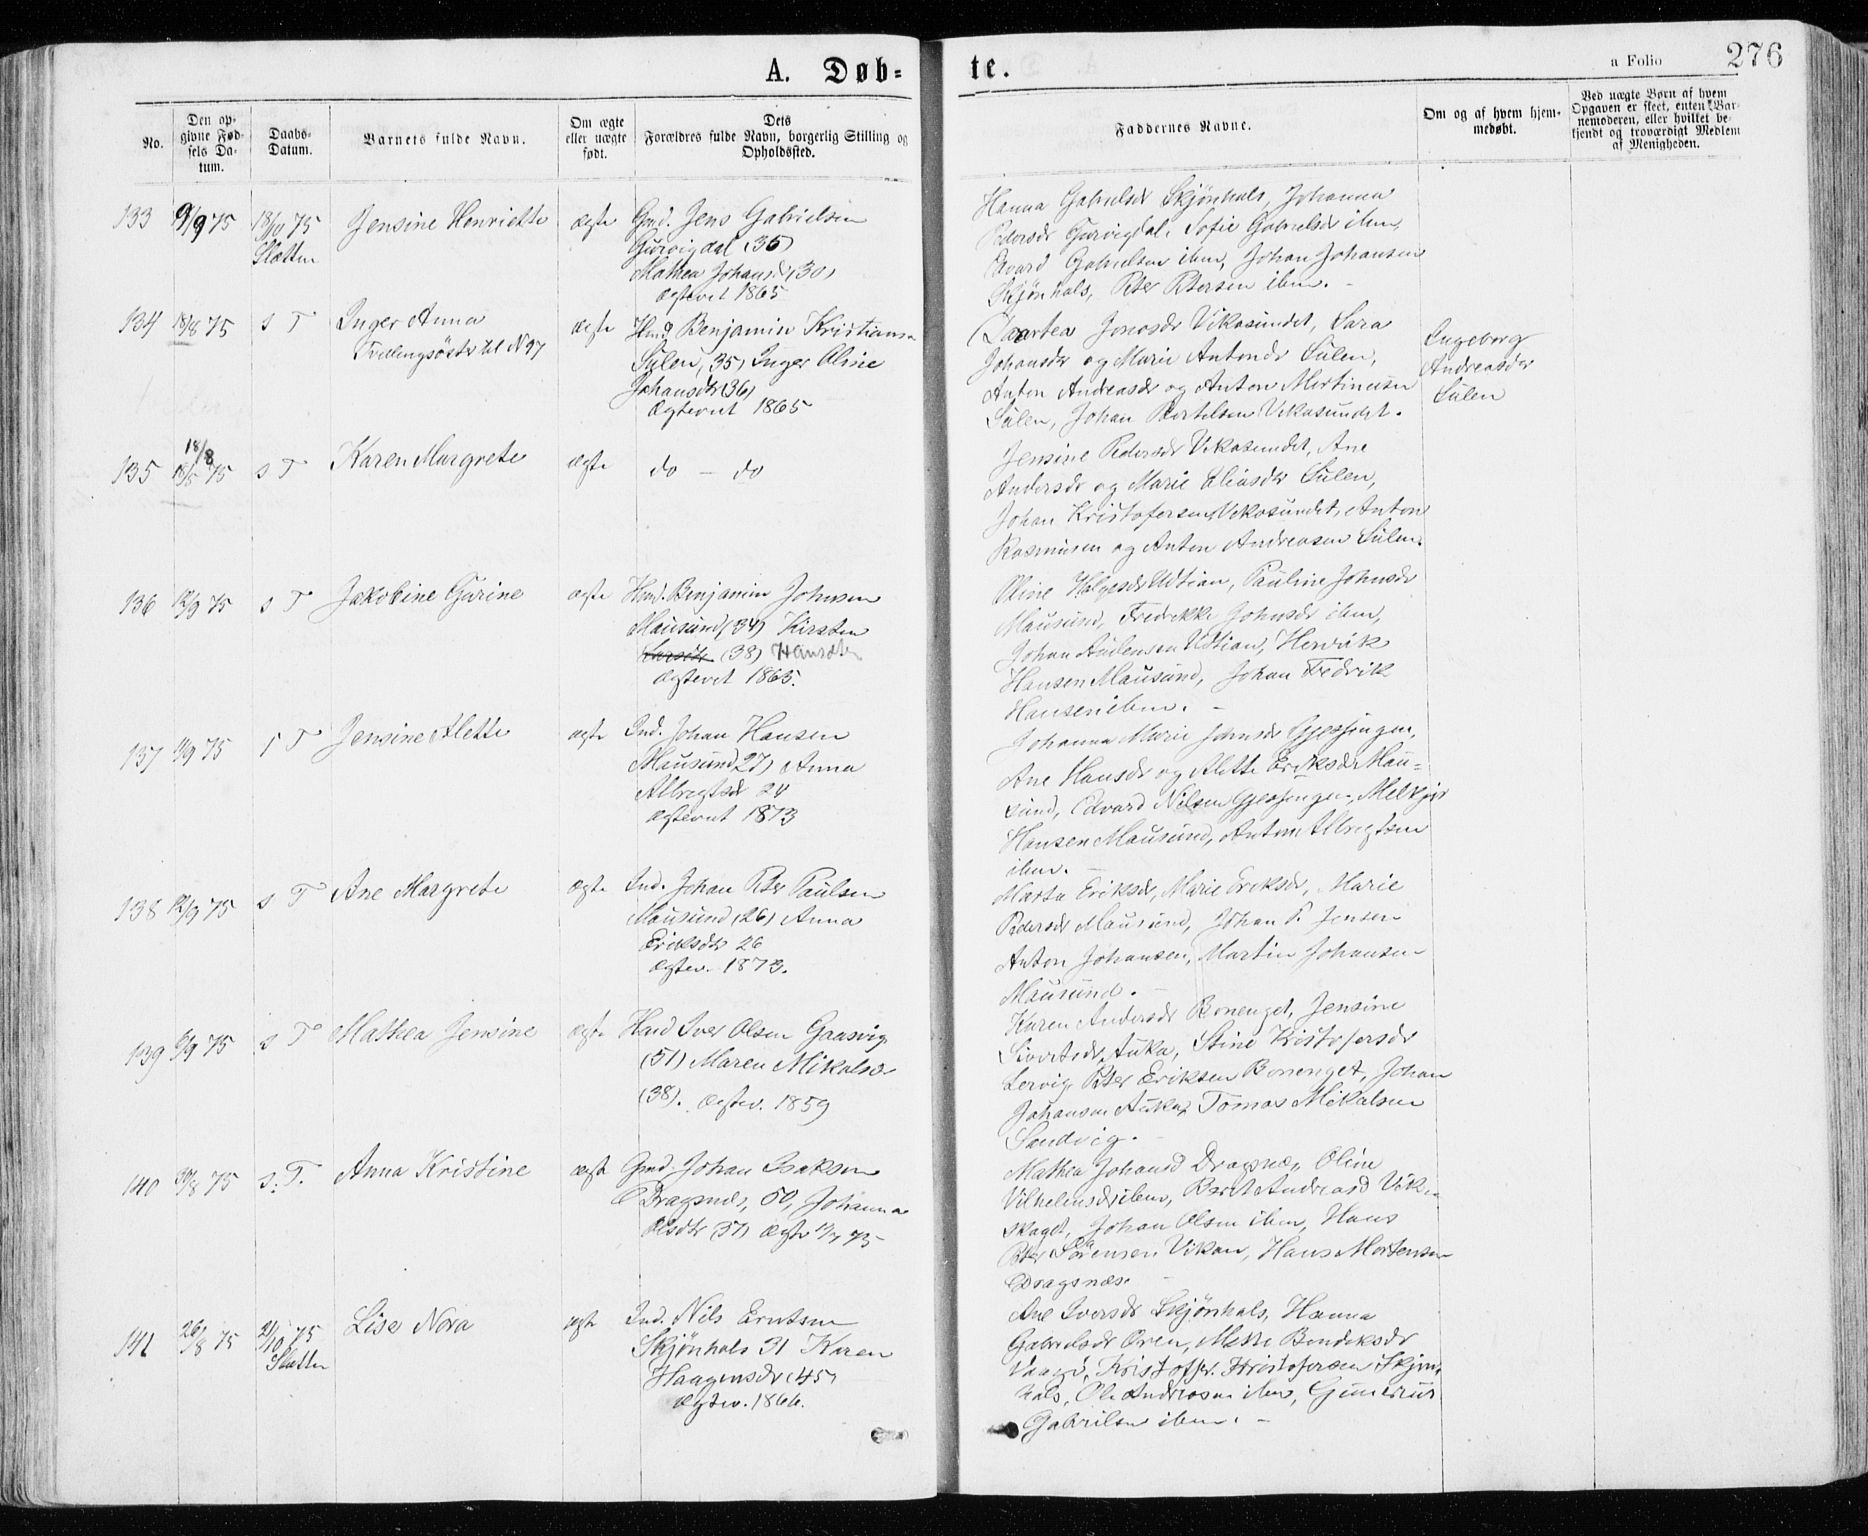 A. Døb=
te.
a Folio 276
No.
Den op-
givne Fød-
sels Da-
tum.
Daabs-
Datum.
Barnets fulde Navn.
Om ægte
eller uægte
født.
Dets
Forældres fulde Navn, borgerlig Stilling og
Opholdssted.
Faddernes Navne.
Om og af hvem hjem-
medøbt.
Ved uægte Børn af hvem
Opgaven er skeet, enten Bar-
nemoderen, eller hvilket be-
kjendt og troværdigt Medlem
af Menigheden.
133 9/9 75 18/10 75 Jensine Henriette ægte Gmd. Jens Gabrielsen
Slætten Gurvigdal (35)
Mathea Johansd (30)
ægteviet 1865
Hanna Gabrielsdr Skjønhals, Johanna
Pedersdr Gurvigdal, Sofie Gabrielsdr ibm,
Edvard Gabrielsen ibm, Johan Johansen
Skjønhals, Peter Petersen ibm. -
134 18/8 75 s T Inger Anna ægte Hmd Benjamin Kristians
Tvillingsöster til N 97 Sulen, 35) Inger Oline
Johansdtr (36)
Ægteviet 1865
Jonasdr Vikasundet, Sara
Johansdr og Marie Antondr Sulen,
Anton Andreasdr og Anton Martinusen
Sulen, Johan Bertelsen Vikasundet.
Ingeborg
Andreasdr
Sulen
135 18/8 18/5 75 s T Karen Margrete ægte do - do
Jensine Pedersdr Vikasundet, Ane
Andersdr og Marie Eliasdr Sulen,
Johan Kristofersen Vikasundet, Anton
Rasmusen og Anton Andreasen Sulen.
136 12/9 75 s T Jakobine Gurine ægte Hmd. Benjamin Johnsen
Mausund (34) Kirsten
(38) Hansdtr
Ægteviet 1865.
Oline Udtian, Pauline Johnsdr
Mausund, Fredrikke Johnsdr ibm,
Johan Udtian, Henrik
Hansen Mausund, Johan Fredrik
Hansen ibm. -
137 9/9 75 s T Jensine Alette ægte Ind. Johan Hansen
Mausund 27) Anna
Albregtsdr 24
Ægteviet 1873
Johanna Marie Johnsdr Gjessingen,
Ane Hansdr og Alette Eriksdr Mau=
sund, Edvard Nilsen Gjessingen, Melkjør
Hansen Mausund, Anton Albregtsen
ibm. -
138 12/9 75 s T Ane Margrete ægte Ind. Johan Peter Paulsen
Mausund (26) Anna
Eriksdtr 26
Ægtev. 1873.
Marta Eriksdr, Marie Eriksdr, Marie
Pedersdr Mausund, Johan P. Jensen
Anton Johansen, Martin Johansen
Mausund. -
139 9/9 75 s T Mathea Jensine ægte Hmd Iver Olsen Gaasvig
(51) Maren Mikalsdr
(38). Ægtev. 1859
Karen Andersdr Bonenget, Jensine
Sivertsdr Auka, Stine Kristofersdr
Lervig Peter Eriksen Bonenget, Johan
Johansen Auka, Tomas Mikalsen
Sandvig. -
140 30/8 75 s. T. Anna Kristine ægte Gmd. Johan Isaksen
Dragsnæs, 50, Johanna
Olsdtr (37) Ægte 75
Mathea Johansd Dragsnæs, Oline
Vilhelmsdr ibm, Berit Andreasd Vik-
skaget, Johan Olsen ibm, Hans
Peter Sörensen Vikan, Hans Mortensen
Dragsnæs.
141 26/8 75 21/10 75 Lise Nora ægte Ind. Nils Erntsen
Slætten Skjønhals 31 Karen
Haagensdr (45)
Ægtev. 1866.
Ane Iversdr Skjønhals, Hanna
Gabrielsdr Øren, Mette Bendiksdr
Vaagø, Kristoffer Kristofersen Skjøn
hals, Ole Andreasen ibm, Gunerius
Gabrielsen ibm. -